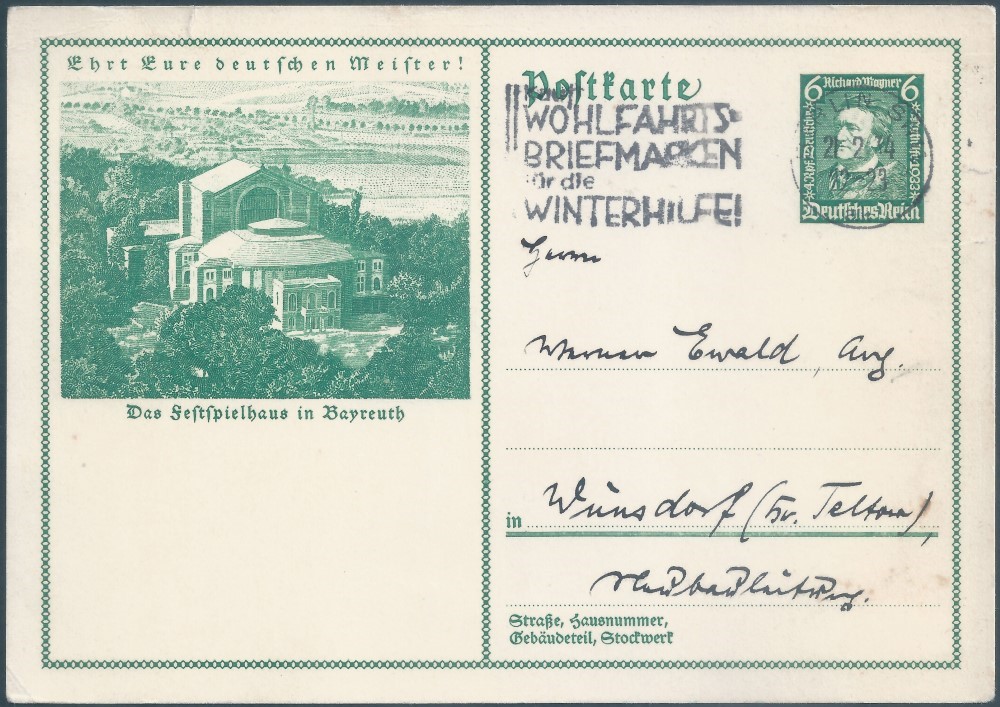 Ehrt Eure deutschen Meister!
Das Festspielhaus in Bayreuth
Postkarte
WOHLFAHRTS-
BRIEFMARKEN
für die
WINTERHILFE!
6 Richard Wagner 6
1833 1933
Deutsches Reich
22-23
Herrn
Werner Ewald, Arg.
in Wünsdorf (Kr. Teltow),
Neubauleitung.
Straße, Hausnummer,
Gebäudeteil, Stockwerk